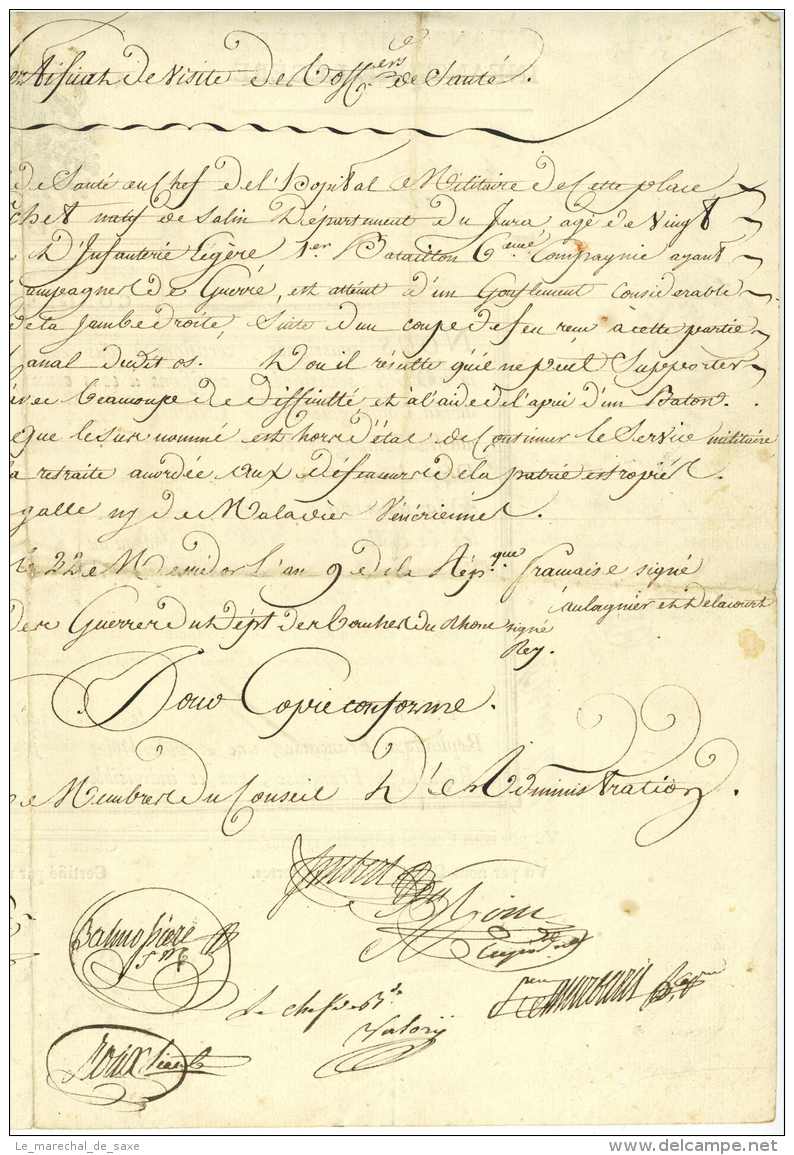 ertificat de Visite de L'offers de Santé.
de Santé en Chef de l'hopital Militaire de Cette place
chet natif de Salin Département du Jura agé de Vingt
D'Infanterie Légère 1.er Bataillon 6.eme Compagnie ayant
Campagnes de Guerre, est attéint d'un Gonflement Considerable
de la Jambe droite, Suite d'un coup de feu reçu à cette partie
Canal dudit os. D'ou il résulte qu'il ne peut Supporter
avec beaucoupe de difficultté, et à l'aide de l'apui d'un Baton.
que le Sus nommé est hors d'état de Continuer le Service militaire
la retraite accordée aux défenseurs de la patrie estropiés.
galle ny de Maladies Vénériennes.
le 22 Messidor l'an 9 de la Rép.que francaise signé
aulagnier et Delacourt
des Guerres du Dépt des bouches du Rhône signé
Rey.
Pour Copie conforme.
Membres du Conseil D'Administration.
Le chef de B.
Valory
Roux
Le_marechal_de_saxe
delcampe.net